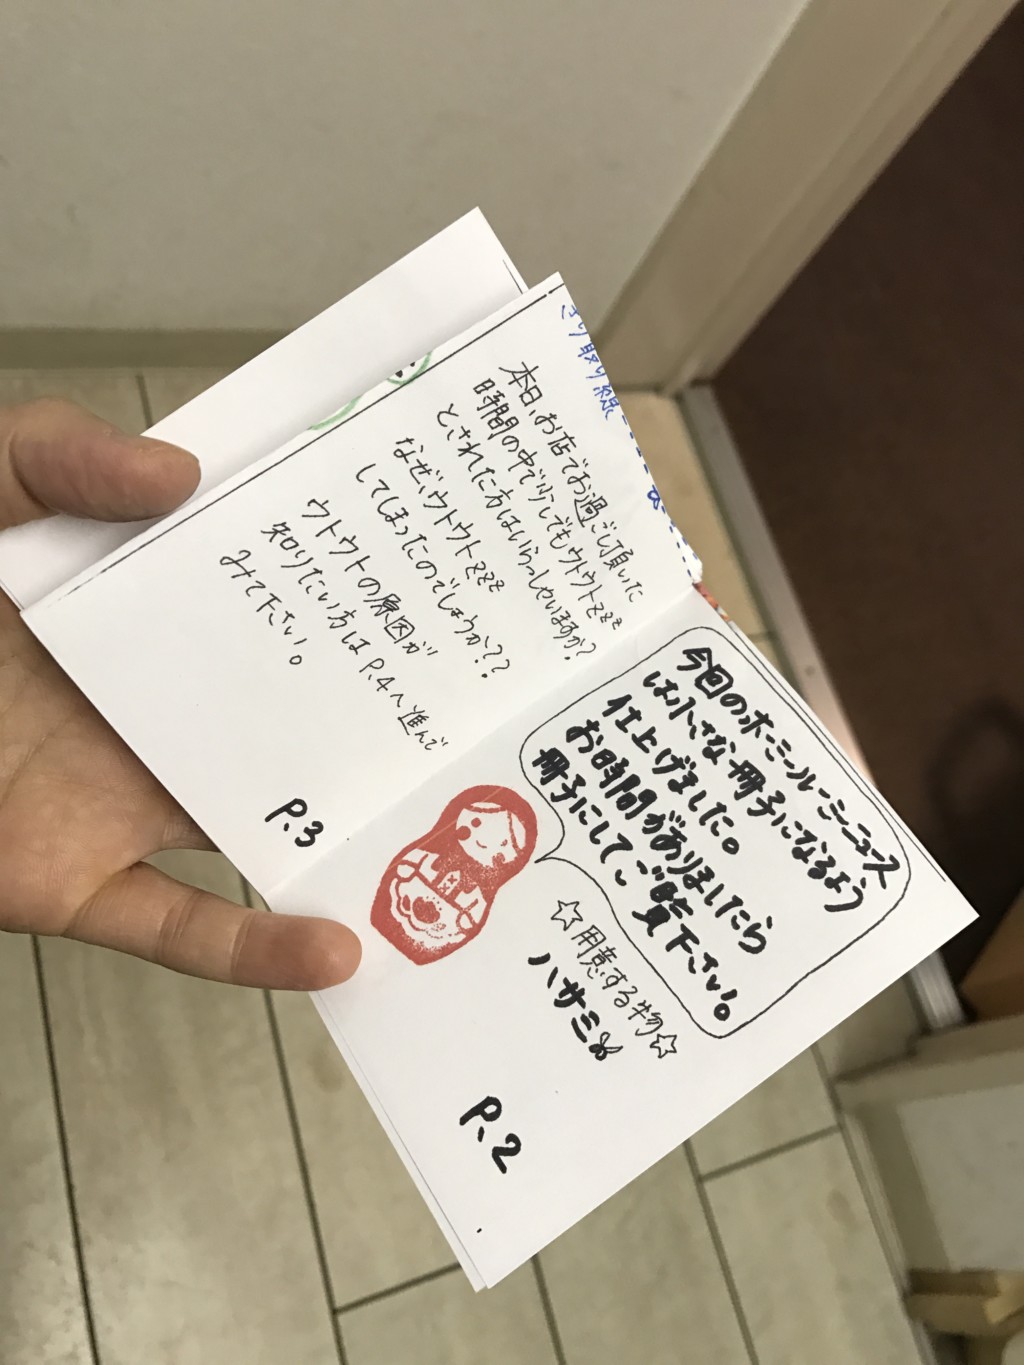 今回のホーミールーミーニュース
は小さな冊子になるよう
仕上げました。
お時間がありましたら
冊子にしてご覧下さい。
☆用意する物☆
ハサミ
P.2
本日、お店でお過ごし頂いた
時間の中で少しでもウトウトzzz
とされた方はいらっしゃいますか?
なぜ、ウトウトzzz
してしまったのでしょうか??
ウトウトの原因が
知りたい方は P.4へ進んで
みて下さい。
P.3
きり取り線